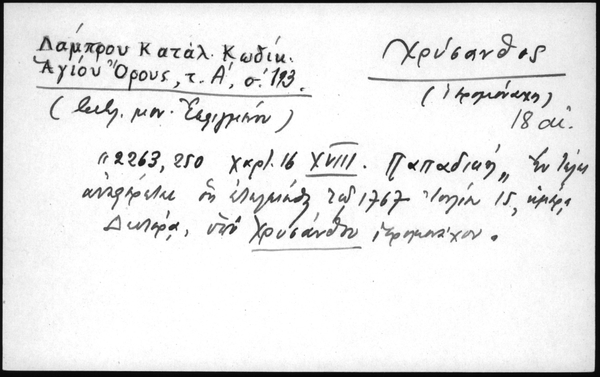 Λάμπρου Κατάλ. Κωδίκ.
Ἁγίου Ὄρους, τ. Α', σ. 193.
Χρύσανθος
(ἱερομόναχος)
18 αἰ.
(Βιβλ. μον. Ἐσφιγμένου)
"2263, 250 χαρτ. 16 XVIII. Παπαδική, Ἐν τέλει
ὅτι τοῦ 1767 Ἰουλίου 15, ἡμέρᾳ
Δευτέρᾳ, ὑπὸ Χρυσάνθου ἱερομονάχου.